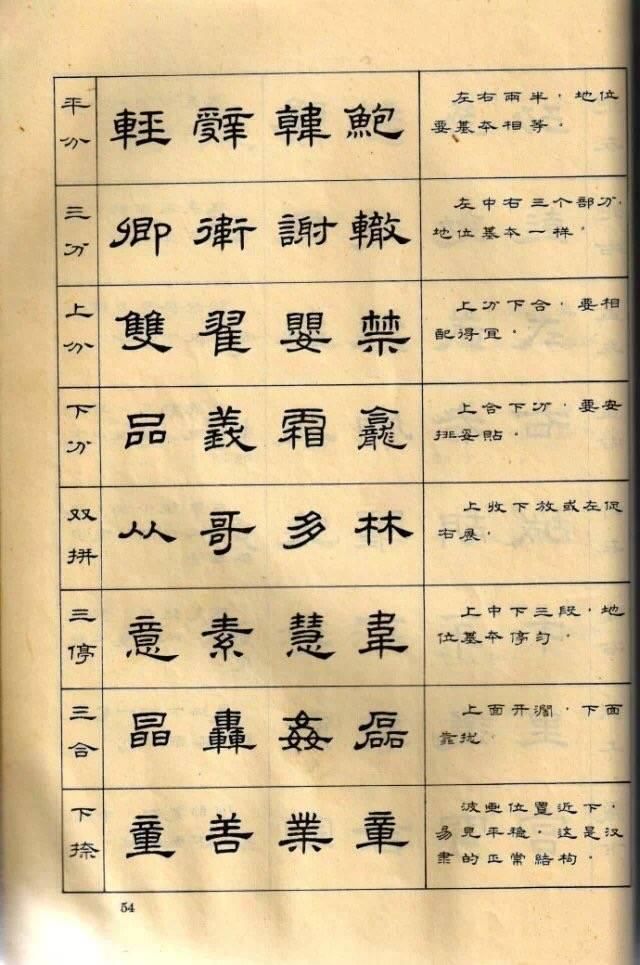 平分
輕 辤 韓 鮑
左右兩半，地位
要基本相等。
三分
卿 衛 謝 轍
左中右三个部分，
地位基本一样。
上分
雙 翟 嬰 禁
上分下合，要相
配得宜。
下分
品 義 霜 龕
上合下分，要安
排妥貼。
双拼
从 哥 多 林
上收下放或左促
右展。
三停
意 素 慧 韋
上中下三段，地
位基本停匀。
三合
晶 轟 姦 磊
上面开濶，下面
靠拢。
下捺
童 善 業 章
波画位置近下，
易見平稳，这是汉
隶的正常結构。
54